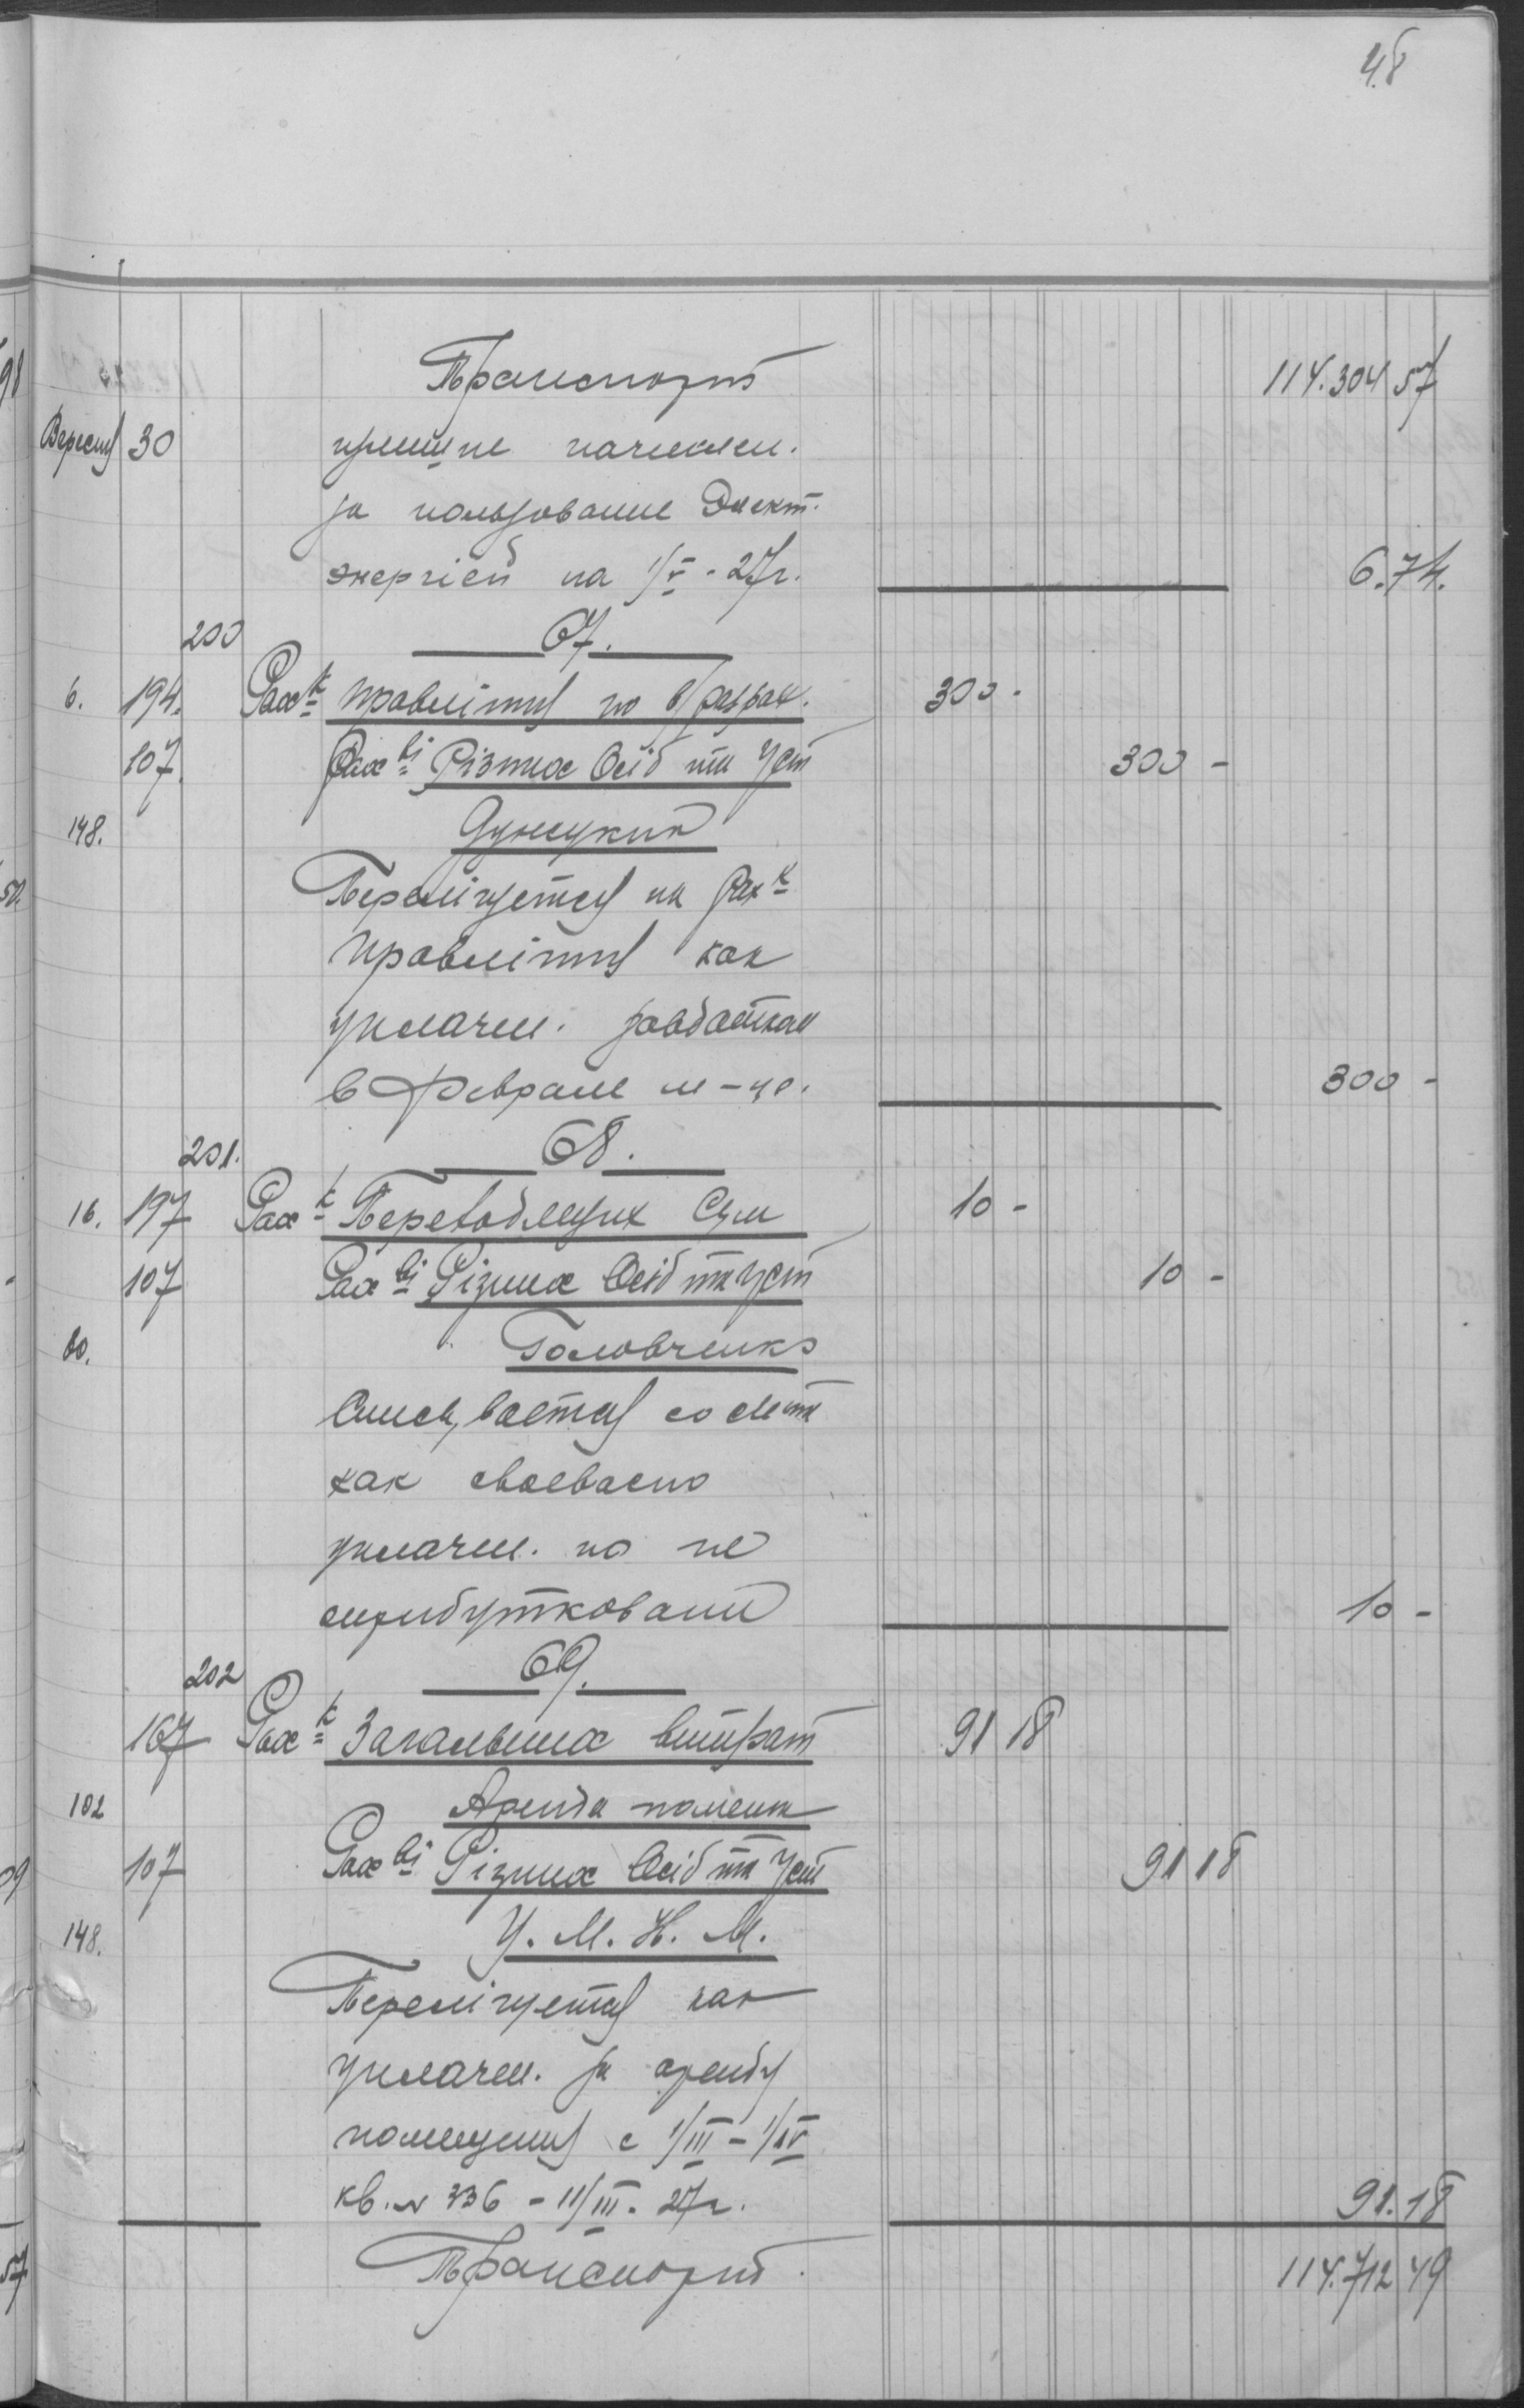 48
Транспорт 114.304 57
Вересня 30
за пользование Элект.
энергіей на 1/V - 27г. 6.74.
200 67.
6. 194. Рах-к Правлiння по 300 -
107. Рах-ві Різних Осіб та Уст 300 -
148.
Перелічується на Рах-к
Правлiння как
уплачен. завдатком
в Феврале м-це. 300 -
201. 68.
16. 197 Рах-к Переводящих Сум 10 -
107 Рах-ві Різних Осіб та Уст 10 -
80. Головченко
Списывается со счета
как своевасно
уплачен. но не
оприбутковани 10 -
202 69.
167 Рах-к Загальних витрат 91 18
102 Аренда помещ
107 Рах-ві Різних Осіб та Уст 91 18
148. У. М. Н. М.
Перелічуется как
уплачен. за аренду
помещения с 1/III - 1/IV
кв. N 336 - 11/III - 27г. 91.18
Транспорт. 114.712 49
98
50.
09
57